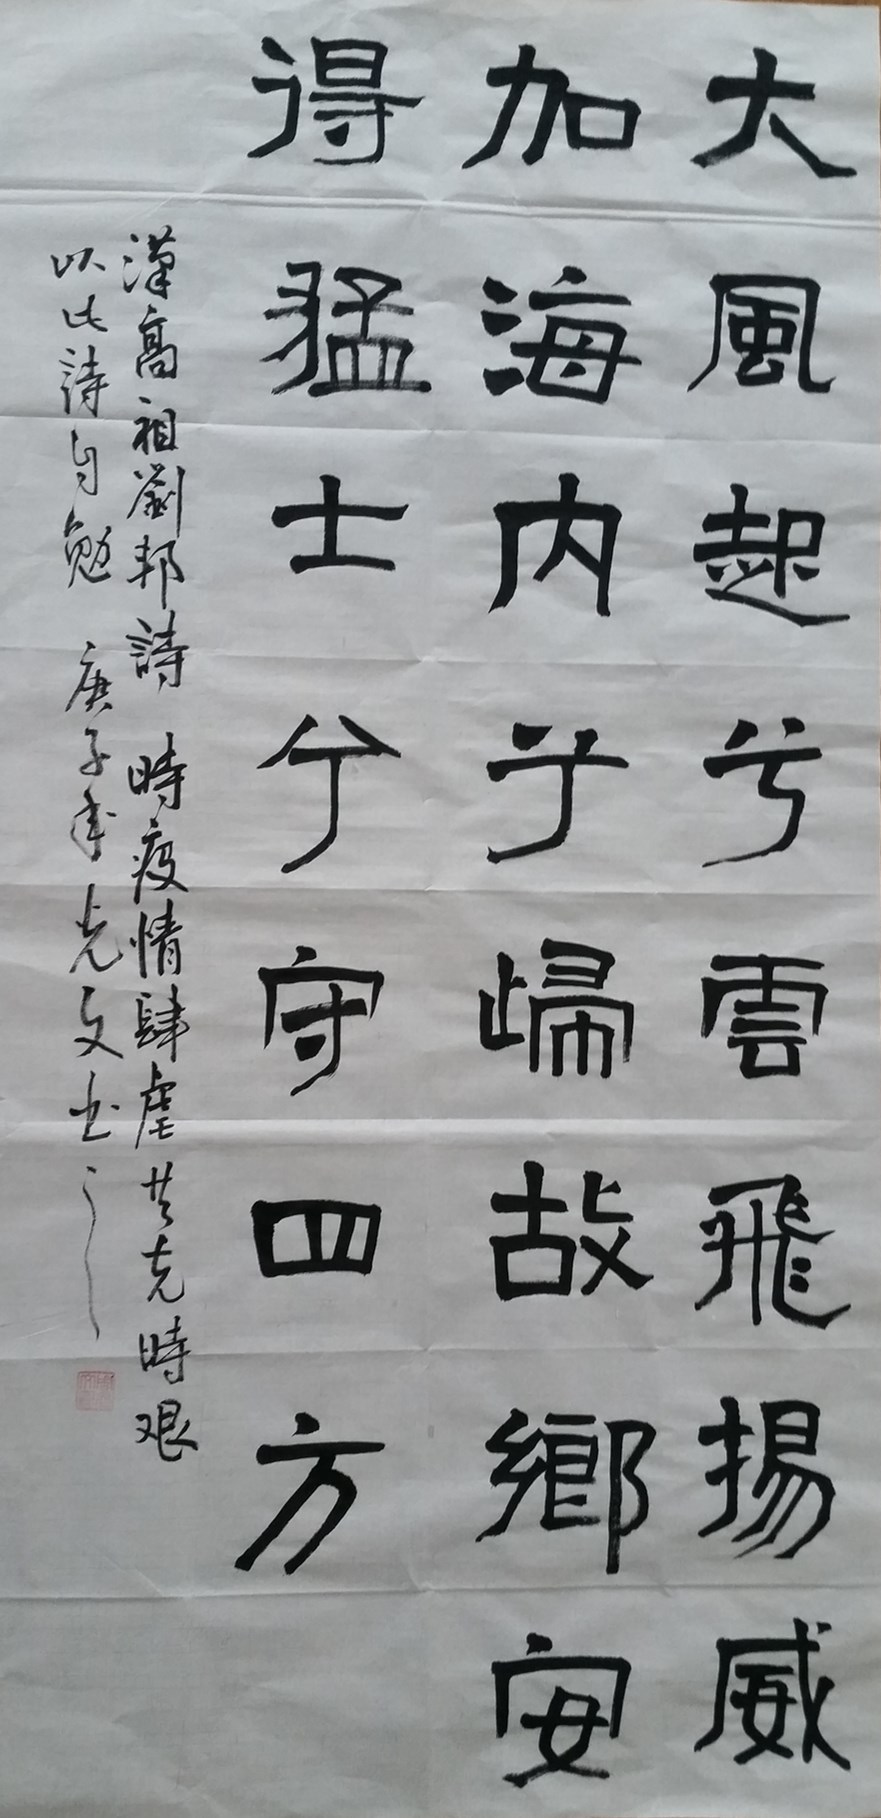 大風起兮雲飛揚威
加海内兮歸故鄉安
得猛士兮守四方
漢高祖劉邦詩 時疫情肆虐共克時艱
以此詩自勉 庚子年光文书